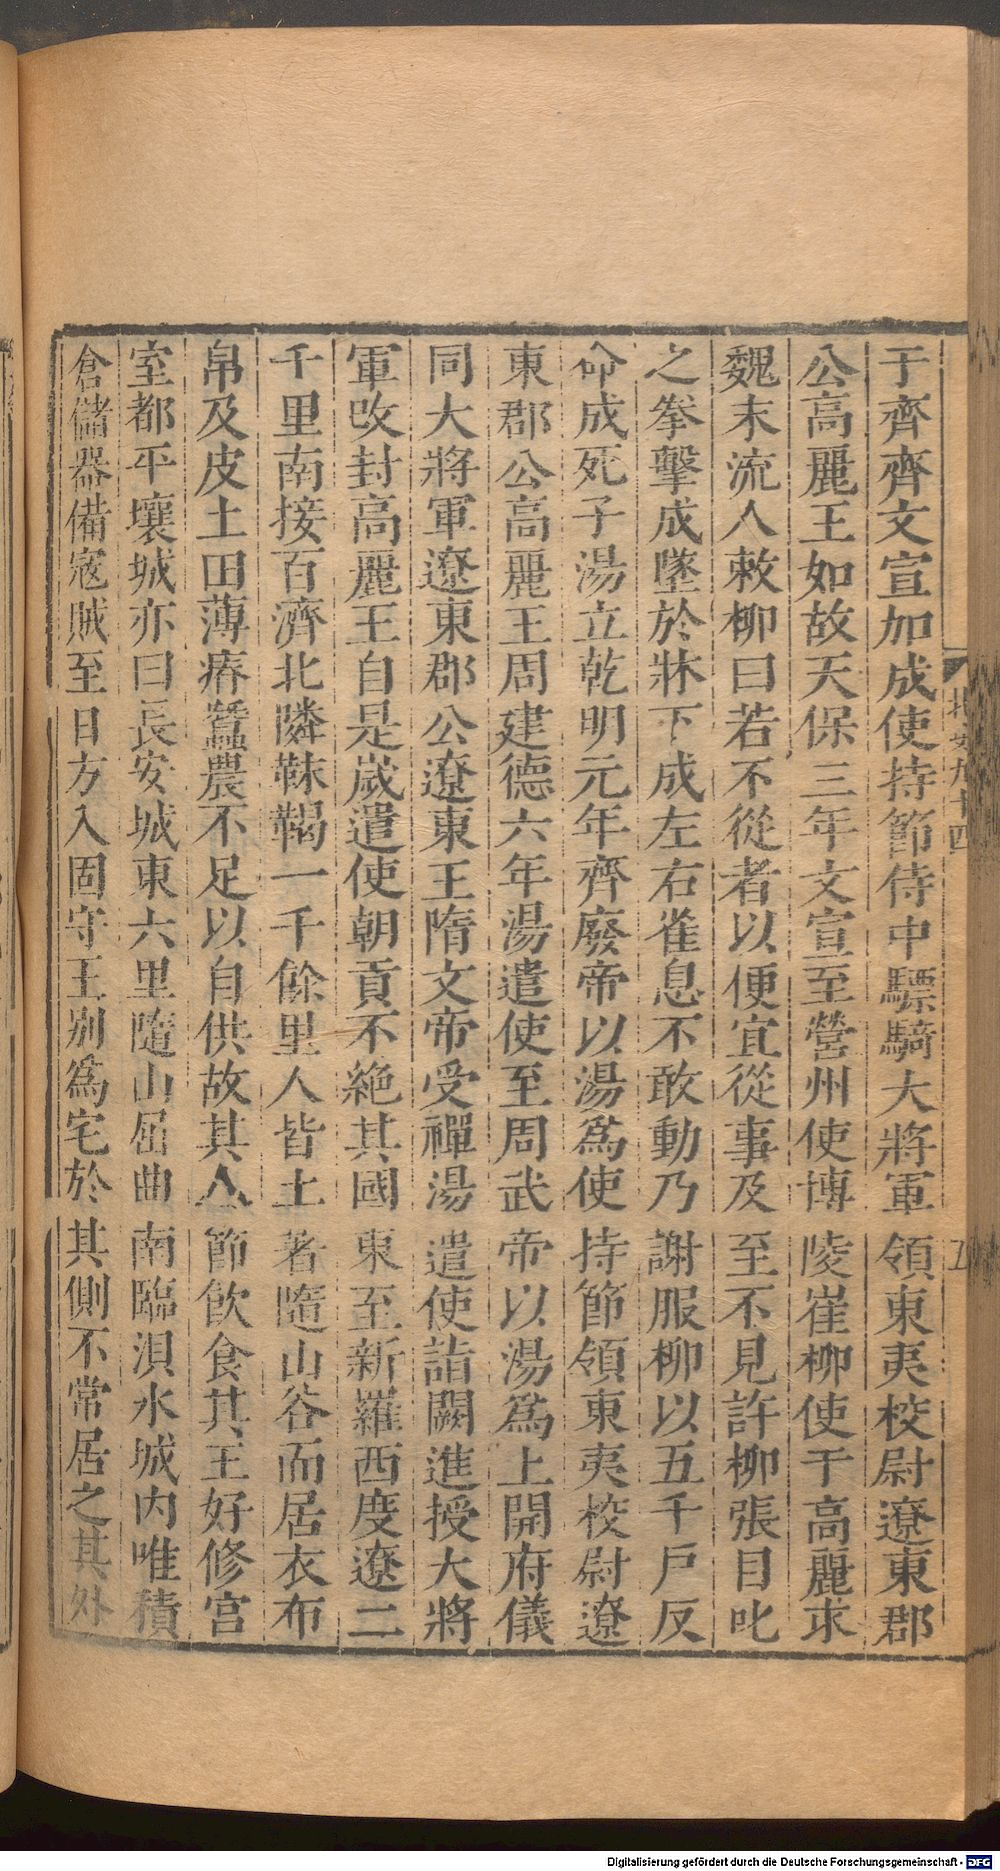 于齊齊文宣加成使持節侍中驃騎大將軍領東夷校尉遼東郡
公高麗王如故天保三年文宣至營州使博陵崔柳使于高麗求
魏末流人敕柳曰若不從者以便宜從事及至不見許柳張目叱
之拳擊成墜於牀下成左右雀息不敢動乃謝服柳以五千戶反
命成死子湯立乾明元年齊廢帝以湯爲使持節領東夷校尉遼
東郡公高麗王周建德六年湯遣使至周武帝以湯爲上開府儀
同大將軍遼東郡公遼東王隋文帝受禪湯遣使詣闕進授大將
軍改封高麗王自是歲遣使朝貢不絶其國東至新羅西度遼二
千里南接百濟北隣靺鞨一千餘里人皆土著隨山谷而居衣布
帛及皮土田薄瘠蠶農不足以自供故其人節飲食其王好修宫
室都平壤城亦曰長安城東六里隨山屈曲南臨浿水城内唯積
倉儲器備寇賊至日方入固守王别爲宅於其側不常居之其外
北史九十四
五
Digitalisierung gefördert durch die Deutsche Forschungsgemeinschaft - DFG